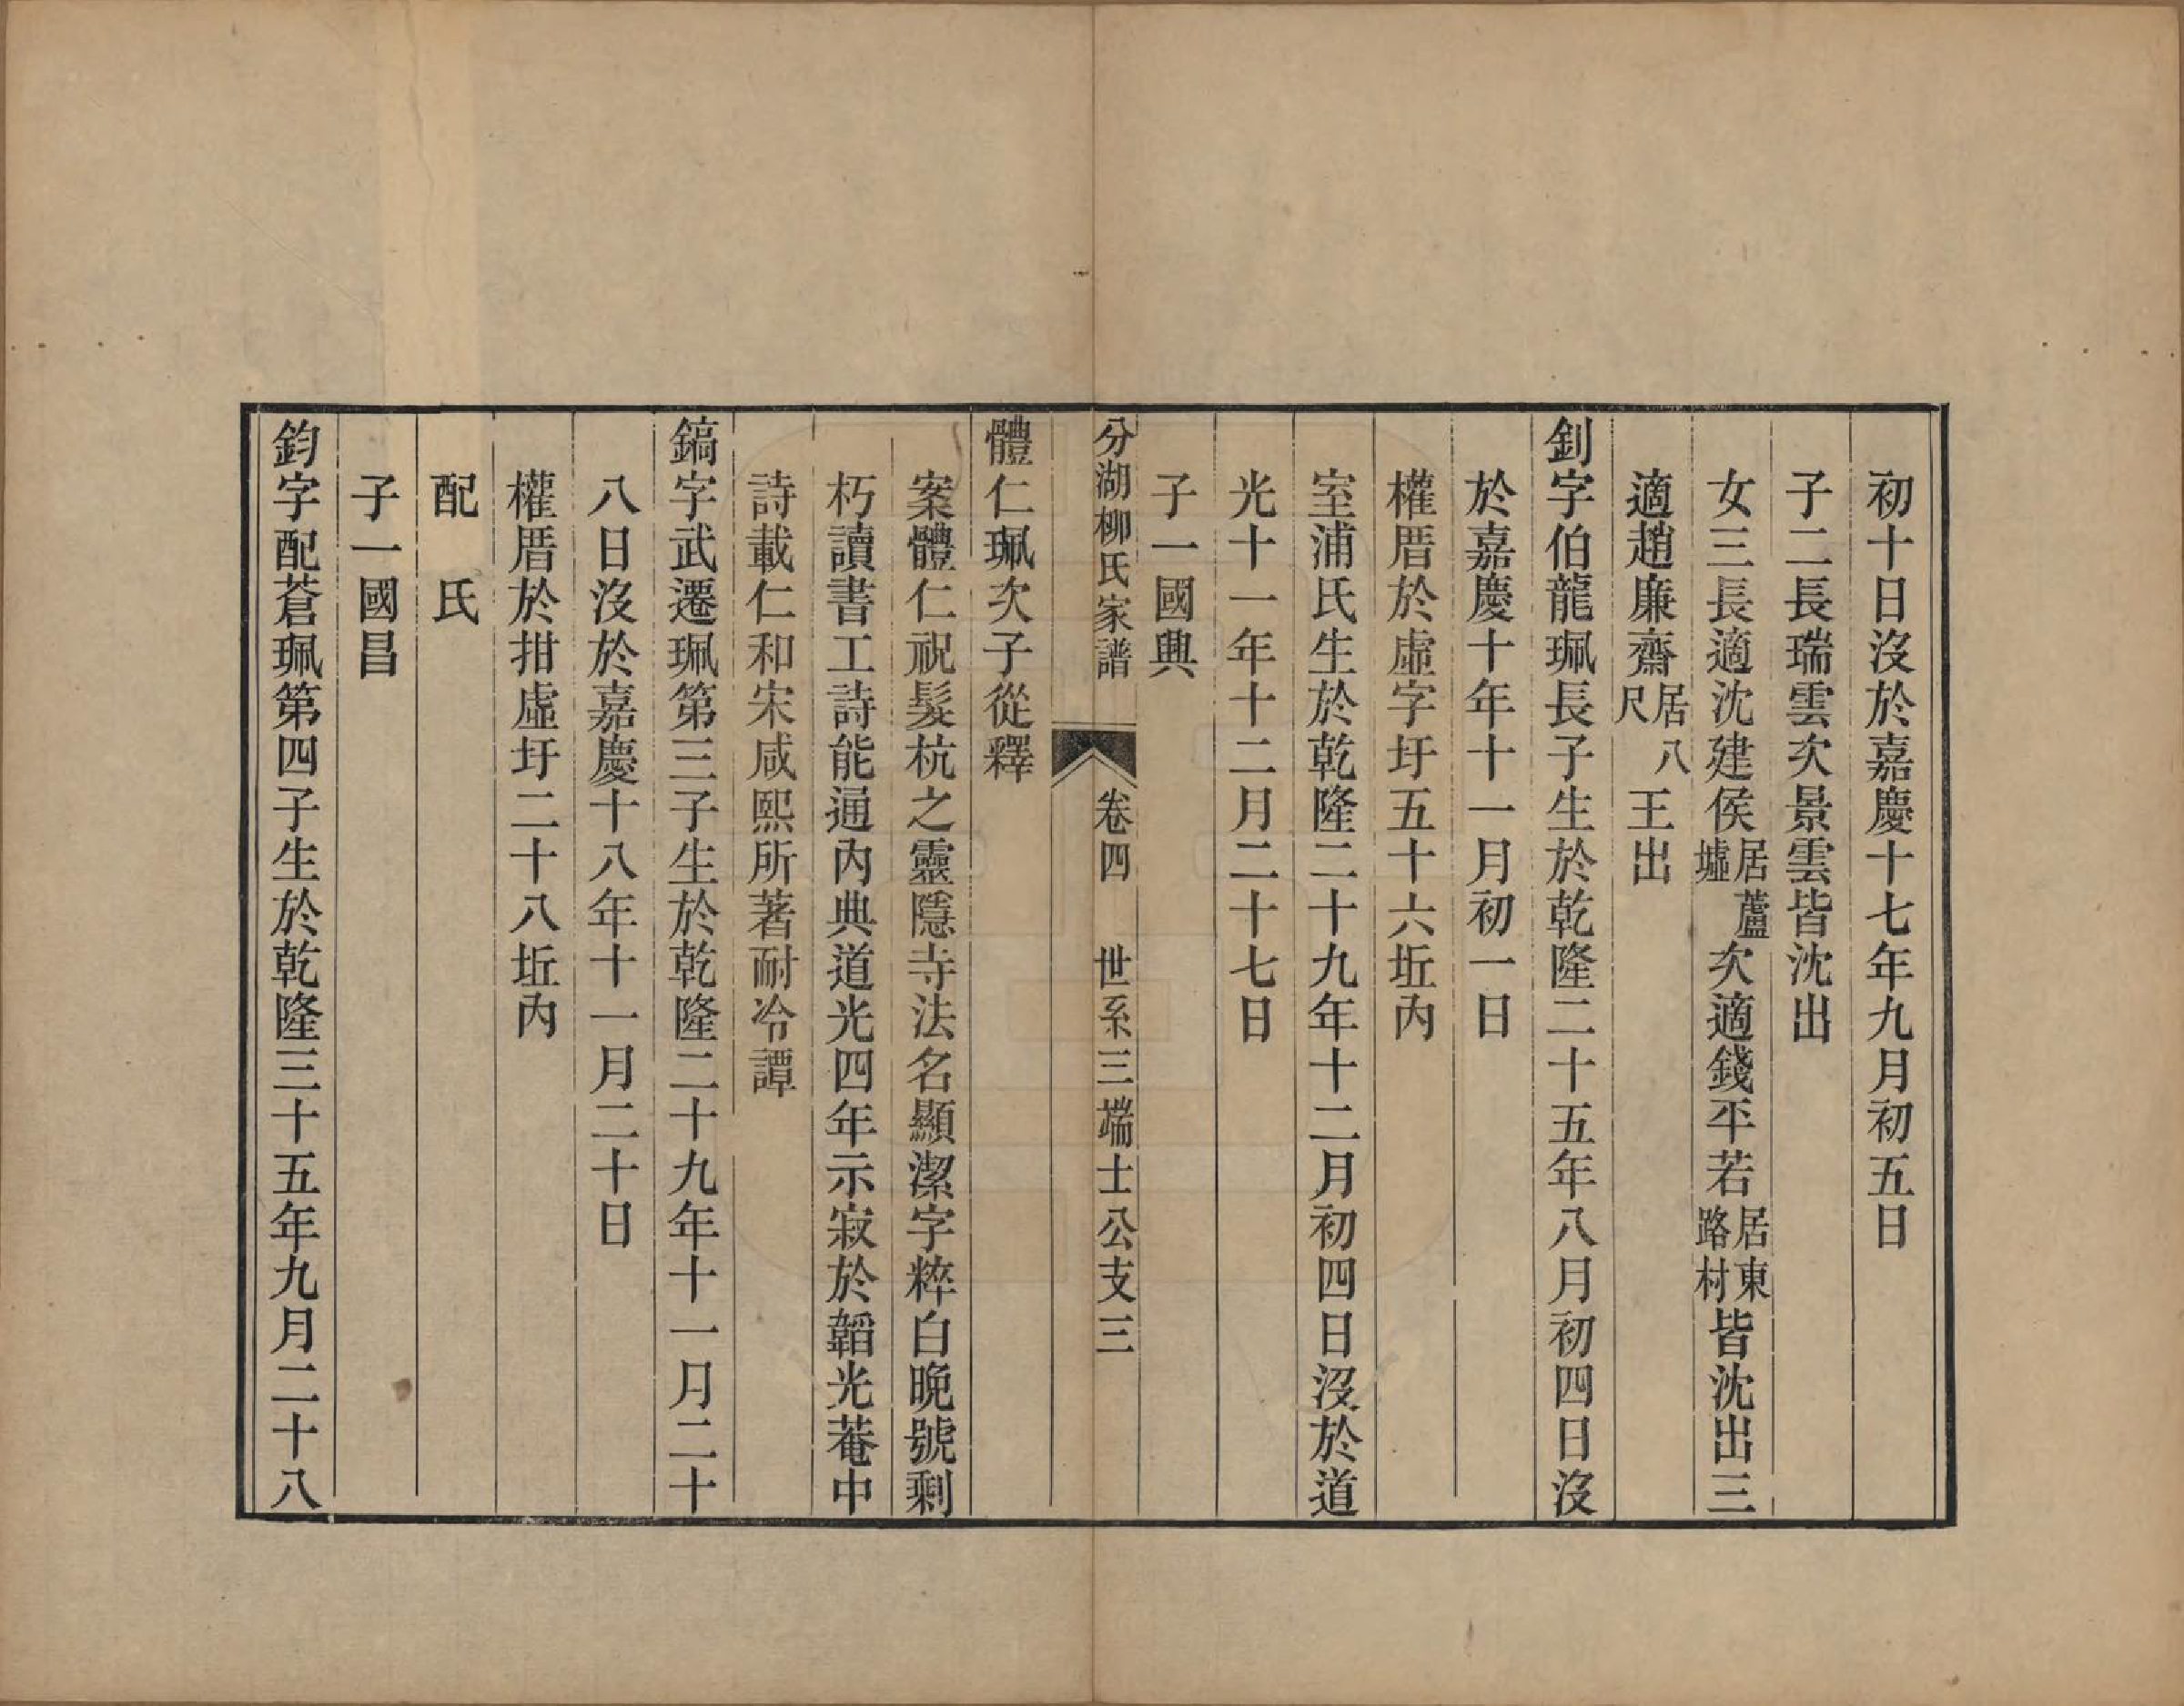 初十日沒於嘉慶十七年九月初五日
子二長瑞雲次景雲皆沈出
女三長適沈建侯居蘆墟次適錢平若居東路村皆沈出三
適趙廉齋居八尺王出
釗字伯龍珮長子生於乾隆二十五年八月初四日沒
於嘉慶十年十一月初一日
權厝於虛字圩五十六坵內
室浦氏生於乾隆二十九年十二月初四日沒於道
光十一年十二月二十七日
子一國興
分湖柳氏家譜 卷四 世系三端士公支三
體仁珮次子從釋
案體仁祝髮杭之靈隱寺法名顯潔字粹白晚號剩
朽讀書工詩能通內典道光四年示寂於韜光菴中
詩載仁和宋咸熙所著耐冷譚
鎬字武遷珮第三子生於乾隆二十九年十一月二十
八日沒於嘉慶十八年十一月二十日
權厝於拑虛圩二十八坵內
配 氏
子一國昌
鈞字配蒼珮第四子生於乾隆三十五年九月二十八